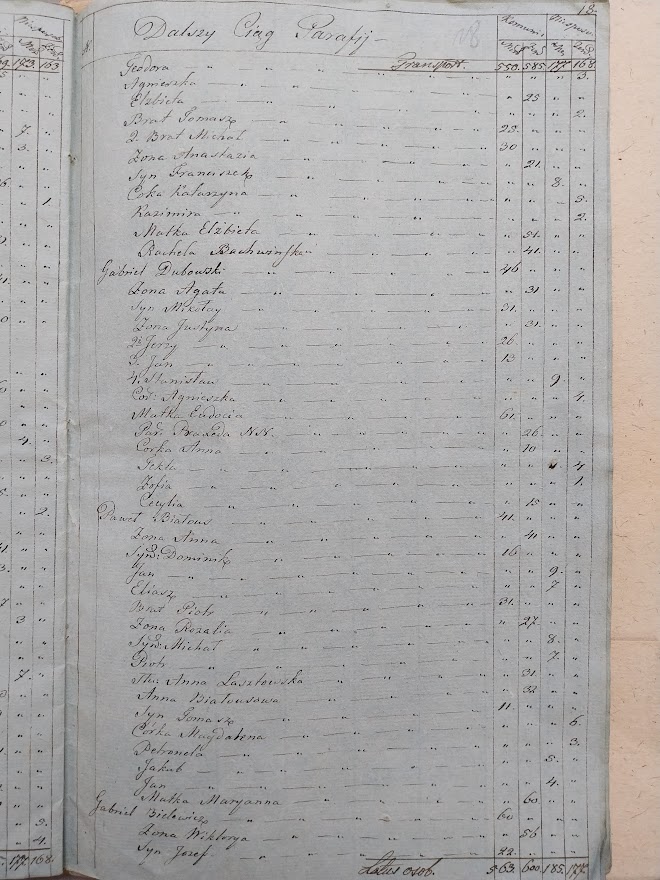 18.
8. Dalszy Ciąg Parafij
Komuni: Niespow:
Męż: Żeń: Męż: Żeń:
Teodora " " Transport. 550. 585. 177. 168.
Agnieszka " " " 3.
Elżbieta " 25 " "
Brat Tomasz " " " 2.
2. Brat Michał 25. " " "
Żona Anastazia 30 " " "
Syn Franciszek " 21. " "
Corka Katarzyna " " 8. "
Kazimira " " " 3.
Matka Elżbieta " " " 2.
Rachela Bachwińska " 51. " "
Gabriel Dubowski " 41. " "
Żona Agata 46 " " "
Syn Mikołay " 31 " "
Żona Justyna 31. " " "
2i Jerzy " 31. " "
3. Jan 26. " " "
4. Stanisław 13 " " "
Cór: Agnieszka " " 9. "
Matka Eudocia " " " 4.
Par: Praxeda NN. 61. " " "
Corka Anna " 26. " "
Tekla " 10 " "
Zofia " " " 4
Cecylia " " " 1.
Paweł Białous " 15 " "
Żona Anna 41. " " "
Syn: Dominik " 41 " "
Jan 16 " " "
Eliasz " " 9. "
Brat Piotr " " 7 "
Żona Rozalia 31. " " "
Syn: Michał " 27. " "
Piotr " " 8. "
Anna Laszłowska " " 7. "
Anna Białousowa " 31. " "
Syn Tomasz " 32 " "
Córka Magdalena 11. " " "
Petronela " " " 6.
Jakub " " " 3.
Jan " " 8. "
Matka Maryanna " " 4. "
Gabriel Bielewicz " 60 " "
Żona Wiktorya 60 " " "
Syn Jozef " 56 " "
22. " " "
osob. 563. 600. 185. 177.